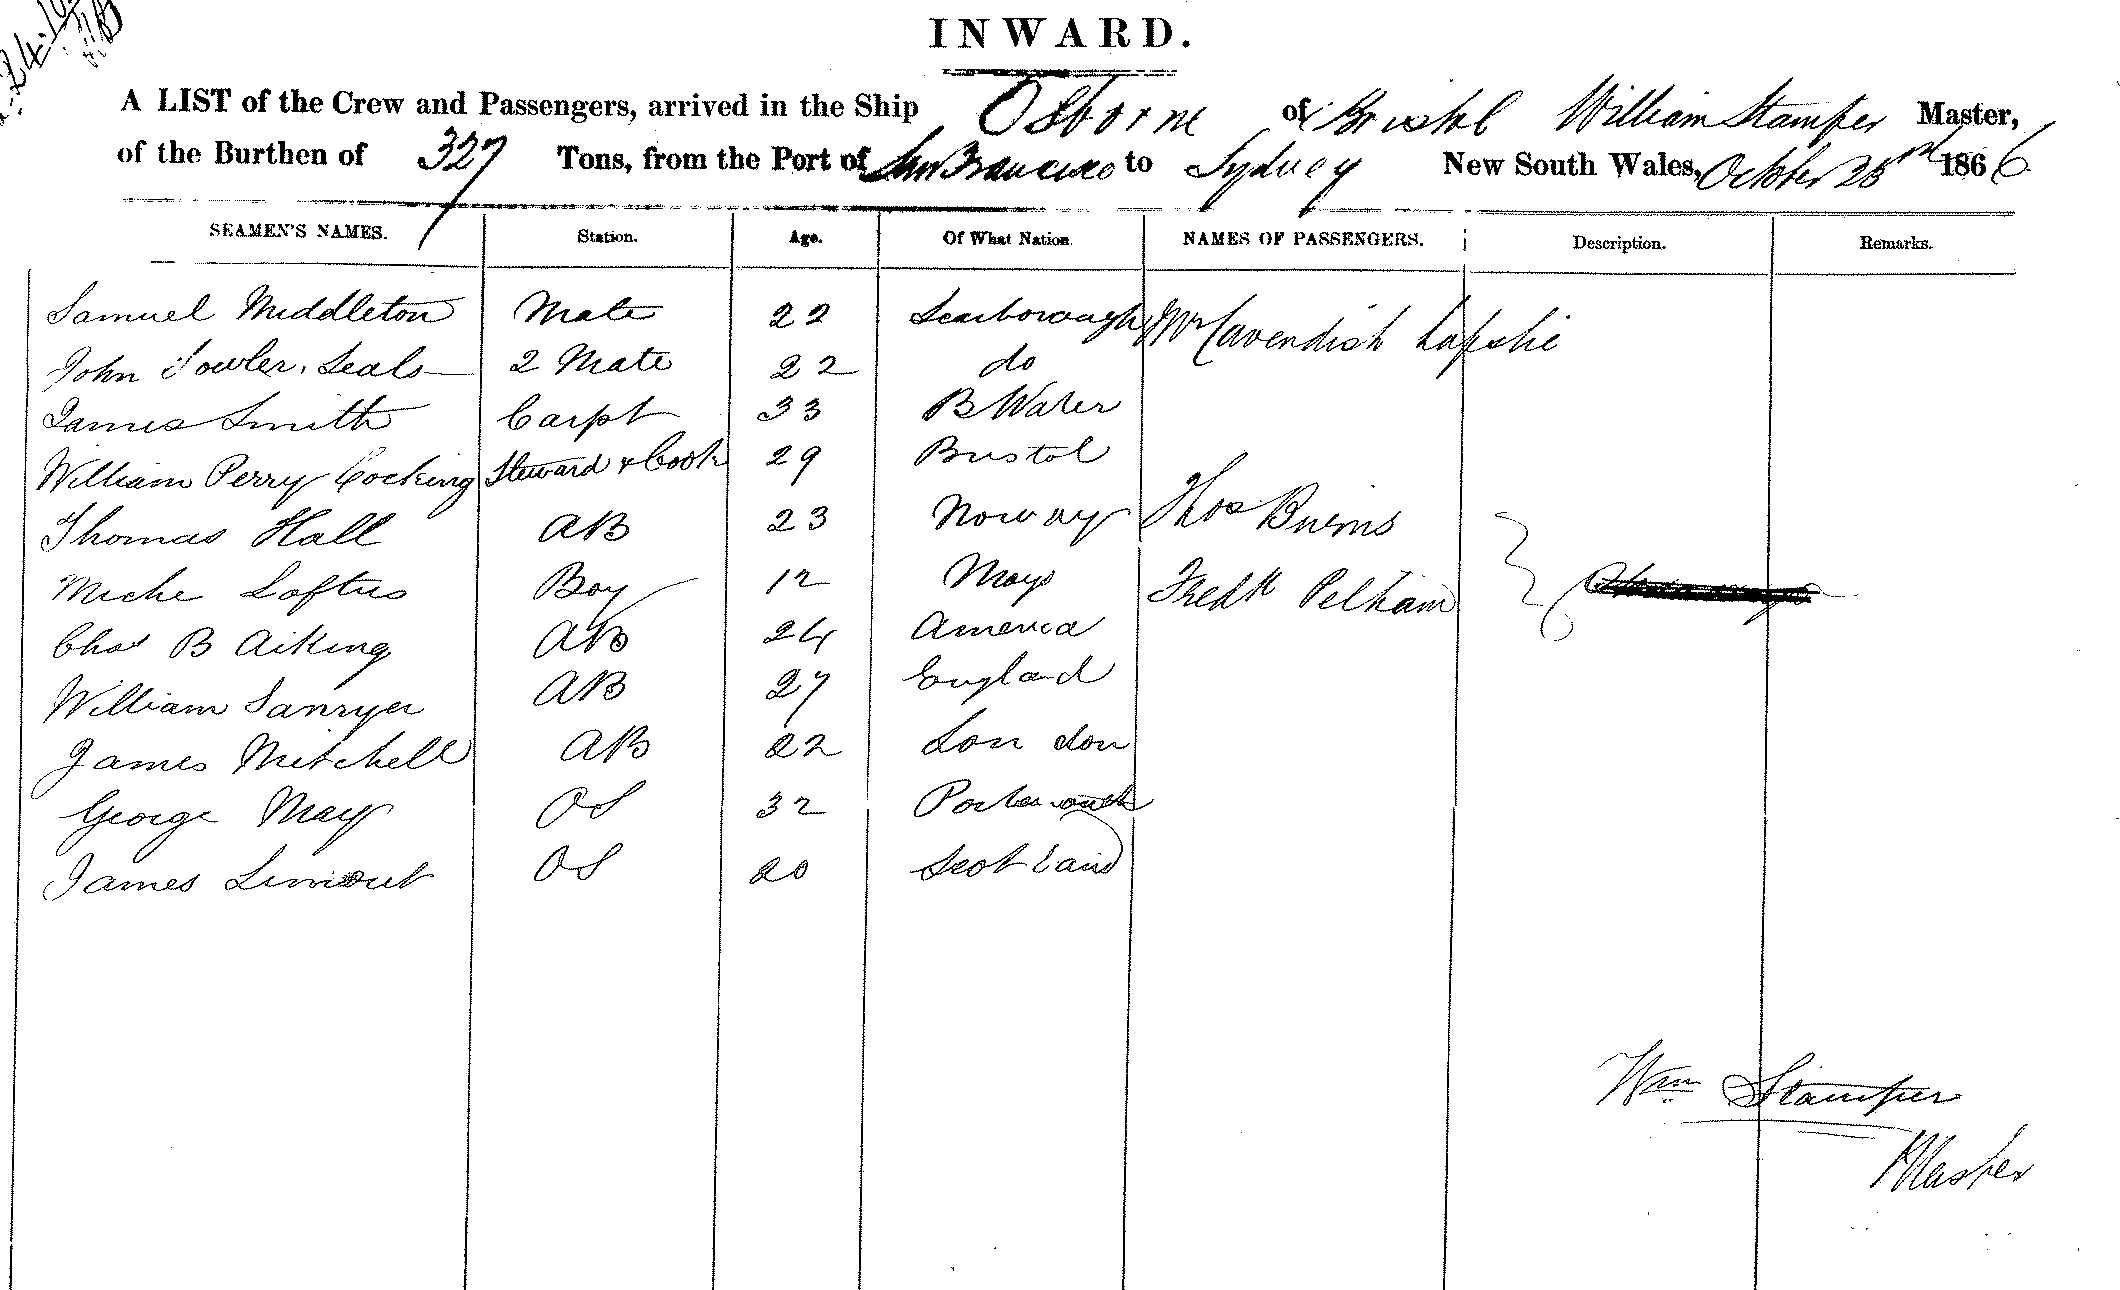 24.10
INWARD.
A LIST of the Crew and Passengers, arrived in the Ship Osborne of Bristol William Stamper Master,
of the Burthen of 327 Tons, from the Port of San Francisco to Sydney New South Wales, October 23rd 1866
SEAMEN'S NAMES. Station. Age. Of What Nation. NAMES OF PASSENGERS. Description. Remarks.
Samuel Middleton Mate 22 Scarborough Mr Cavendish
John Fowler. Seals 2 Mate 22 do
James Smith Carpt 33 B Water
William Perry Cocking Steward & Cook 29 Bristol
Thomas Hall AB 23 Noway Thos Burns
Miche Loftus Boy 12 Mayo Fredk Pelham
Chas B Aiking AB 24 America
William AB 27 England
James Mitchell AB 22 London
George May OS 32
James OS 20 Scotland
Wm Stamper
Master